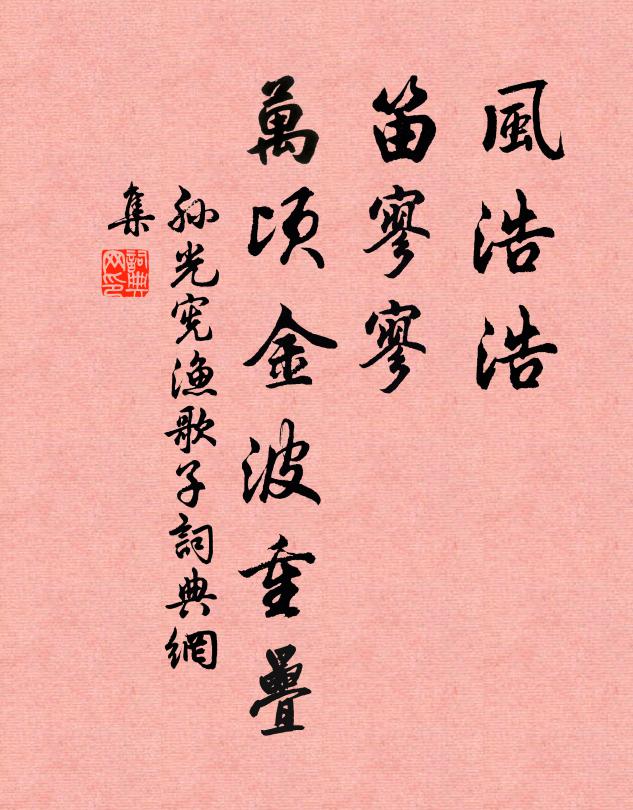 風浩浩
笛寥寥
萬頃金波重疊
孙光宪渔歌子詞典網
集
詞典网印